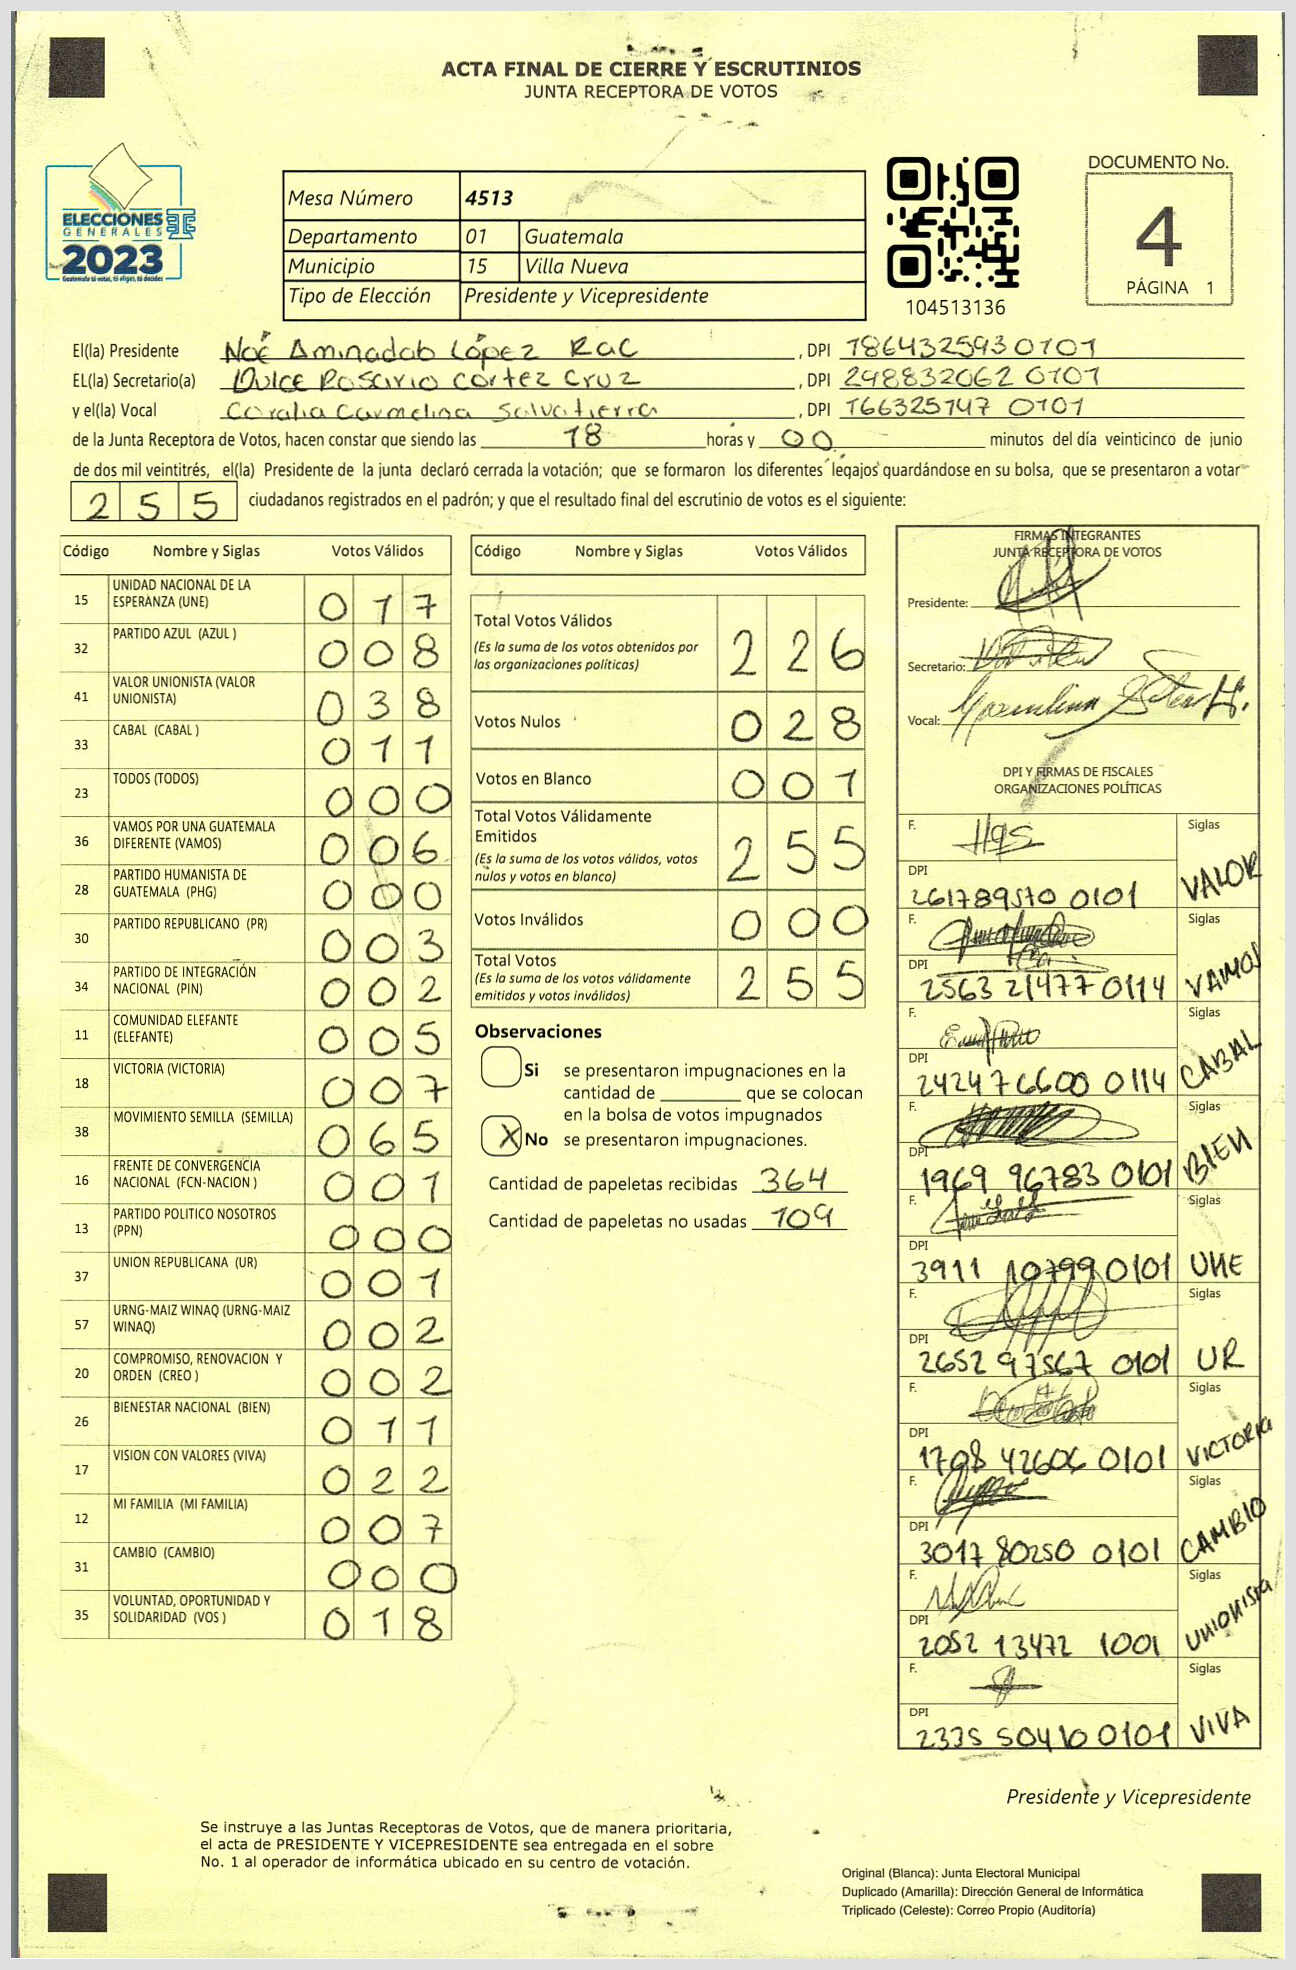 ACTA FINAL DE CIERRE Y ESCRUTINIOS
JUNTA RECEPTORA DE VOTOS
ELECCIONES
GENERALES
2023
Guatemala tú votas, tú eliges, tú decides
Mesa Número 4513
Departamento 01 Guatemala
Municipio 15 Villa Nueva
Tipo de Elección Presidente y Vicepresidente
104513136
DOCUMENTO No.
4
PÁGINA 1
El(la) Presidente Noé Aminadab López Rac, DPI 1864325930101
EL(la) Secretario(a) Dulce Rosario Cortez Cruz, DPI 248832062 0101
y el(la) Vocal Coralia Carmelina Salvatierra, DPI 166325147 0101
de la Junta Receptora de Votos, hacen constar que siendo las 18 horas y 00 minutos del día veinticinco de junio
de dos mil veintitrés, el(la) Presidente de la junta declaró cerrada la votación; que se formaron los diferentes legajos quardándose en su bolsa, que se presentaron a votar
255 ciudadanos registrados en el padrón; y que el resultado final del escrutinio de votos es el siguiente:
Código Nombre y Siglas Votos Válidos
15 UNIDAD NACIONAL DE LA ESPERANZA (UNE) 017
32 PARTIDO AZUL (AZUL ) 008
41 VALOR UNIONISTA (VALOR UNIONISTA) 038
33 CABAL (CABAL ) 011
23 TODOS (TODOS) 000
36 VAMOS POR UNA GUATEMALA DIFERENTE (VAMOS) 006
28 PARTIDO HUMANISTA DE GUATEMALA (PHG) 000
30 PARTIDO REPUBLICANO (PR) 003
34 PARTIDO DE INTEGRACIÓN NACIONAL (PIN) 002
11 COMUNIDAD ELEFANTE (ELEFANTE) 005
18 VICTORIA (VICTORIA) 007
38 MOVIMIENTO SEMILLA (SEMILLA) 065
16 FRENTE DE CONVERGENCIA NACIONAL (FCN-NACION ) 001
13 PARTIDO POLITICO NOSOTROS (PPN) 000
37 UNION REPUBLICANA (UR) 001
57 URNG-MAIZ WINAQ (URNG-MAIZ WINAQ) 002
20 COMPROMISO, RENOVACION Y ORDEN (CREO ) 002
26 BIENESTAR NACIONAL (BIEN) 011
17 VISION CON VALORES (VIVA) 022
12 MI FAMILIA (MI FAMILIA) 007
31 CAMBIO (CAMBIO) 000
35 VOLUNTAD, OPORTUNIDAD Y SOLIDARIDAD (VOS ) 018
Código Nombre y Siglas Votos Válidos
Total Votos Válidos 226
(Es la suma de los votos obtenidos por
las organizaciones políticas)
Votos Nulos 028
Votos en Blanco 001
Total Votos Válidamente
Emitidos 255
(Es la suma de los votos válidos, votos
nulos y votos en blanco)
Votos Inválidos 000
Total Votos 255
(Es la suma de los votos válidamente
emitidos y votos inválidos)
Observaciones
Si se presentaron impugnaciones en la
cantidad de ________ que se colocan
en la bolsa de votos impugnados
X No se presentaron impugnaciones.
Cantidad de papeletas recibidas 364
Cantidad de papeletas no usadas 109
FIRMAS INTEGRANTES
JUNTA RECEPTORA DE VOTOS
Presidente:
Secretario:
Vocal:
DPI Y FIRMAS DE FISCALES
ORGANIZACIONES POLÍTICAS
F. Siglas
DPI 261789570 0101 VALOR
F. Siglas
DPI 2563 21477 0114 VAMOS
F. Siglas
DPI 242476600 0114 CABAL
F. Siglas
DPI 1969 96783 0101 BIEN
F. Siglas
DPI 3911 10799 0101 UNE
F. Siglas
DPI 2652 97567 0101 UR
F. Siglas
DPI 1708 42606 0101 VICTORIA
F. Siglas
DPI 3017 80250 0101 CAMBIO
F. Siglas
DPI 2052 13472 1001 UNIONISTA
F. Siglas
DPI 2335 50410 0101 VIVA
Presidente y Vicepresidente
Se instruye a las Juntas Receptoras de Votos, que de manera prioritaria,
el acta de PRESIDENTE Y VICEPRESIDENTE sea entregada en el sobre
No. 1 al operador de informática ubicado en su centro de votación.
Original (Blanca): Junta Electoral Municipal
Duplicado (Amarilla): Dirección General de Informática
Triplicado (Celeste): Correo Propio (Auditoría)